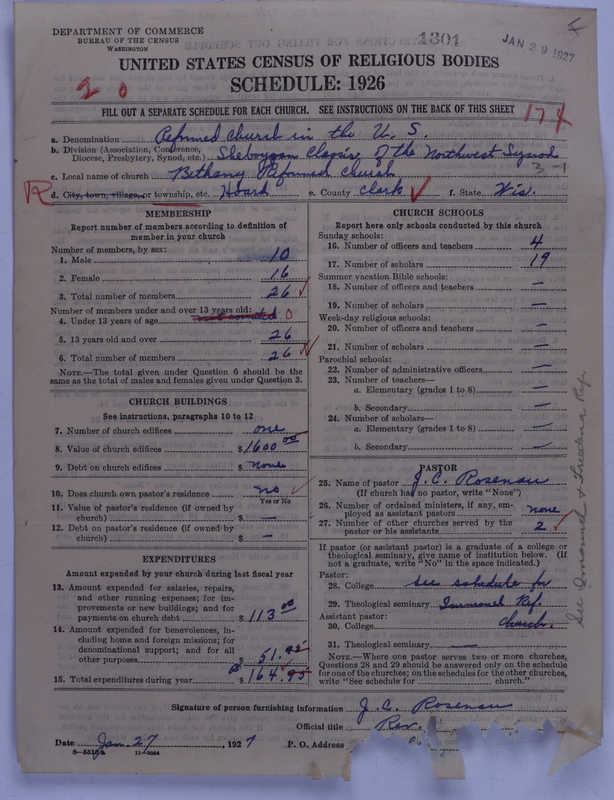 DEPARTMENT OF COMMERCE
BUREAU OF THE CENSUS
WASHINGTON
1301
JAN 29 1927
UNITED STATES CENSUS OF RELIGIOUS BODIES
SCHEDULE: 1926
20
FILL OUT A SEPARATE SCHEDULE FOR EACH CHURCH. SEE INSTRUCTIONS ON THE BACK OF THIS SHEET
174
a. Denomination Reformed Church in the U. S.
b. Division (Association, Conference, Diocese, Presbytery, Synod, etc.) Sheboygan Classis of the Northwest Synod
c. Local name of church Bethany Reformed Church
3-1
R d. City, town, village, or township, etc. Hoard e. County Clark f. State Wis.
MEMBERSHIP
Report number of members according to definition of
member in your church
Number of members, by sex:
1. Male 10
2. Female 16
3. Total number of members 26
Number of members under and over 13 years old:
4. Under 13 years of age not counted 0
5. 13 years old and over 26
6. Total number of members 26
NOTE.—The total given under Question 6 should be
same as the total of males and females given under Question 3.
CHURCH BUILDINGS
See instructions, paragraphs 10 to 12
7. Number of church edifices one
8. Value of church edifices $1600.00
9. Debt on church edifices $ none
10. Does church own pastor's residence no
Yes or No
11. Value of pastor's residence (if owned by
church) $ —
12. Debt on pastor's residence (if owned by
church) $ —
EXPENDITURES
Amount expended by your church during last fiscal year
13. Amount expended for salaries, repairs,
and other running expenses; for im-
provements or new buildings; and for
payments on church debt $ 113.00
14. Amount expended for benevolences, in-
cluding home and foreign missions; for
denominational support; and for all
other purposes 51.95
15. Total expenditures during year $ 164.95
CHURCH SCHOOLS
Report here only schools conducted by this church
Sunday schools:
16. Number of officers and teachers 4
17. Number of scholars 19
Summer vacation Bible schools:
18. Number of officers and teachers —
19. Number of scholars —
Week-day religious schools:
20. Number of officers and teachers —
21. Number of scholars —
Parochial schools:
22. Number of administrative officers —
23. Number of teachers—
a. Elementary (grades 1 to 8) —
b. Secondary —
24. Number of scholars—
a. Elementary (grades 1 to 8) —
b. Secondary —
PASTOR
25. Name of pastor J. C. Rosenau
(If church has no pastor, write "None")
26. Number of ordained ministers, if any, em-
ployed as assistant pastors none
27. Number of other churches served by the
pastor or his assistants 2
If pastor (or assistant pastor) is a graduate of a college or
theological seminary, give name of institution below. (If
not a graduate, write "No" in the space indicated.)
Pastor:
28. College See schedule for
29. Theological seminary Immanuel Ref.
Assistant pastor:
30. College church.
31. Theological seminary —
NOTE.—Where one pastor serves two or more churches,
Questions 28 and 29 should be answered only on the schedule
for one of the churches; on the schedules for the other churches,
write "See schedule for church."
See Immanuel & Ref.
Signature of person furnishing information J. C. Rosenau
Official title Rev.
Date Jan. 27, 1927 P. O. Address